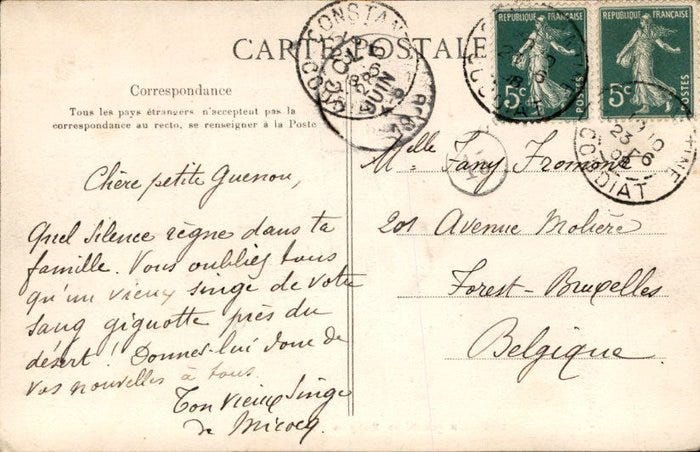 CARTE POSTALE
Correspondance
Tous les pays étrangers n'acceptent pas la
correspondance au recto, se renseigner à la Poste
Chère petite Guenon,
Quel silence règne dans ta
famille. Vous oubliez tous
qu'un vieux singe de votre
sang gigotte près du
désert! Donnez-lui donc de
vos nouvelles à tous.
Ton vieux singe
de
RÉPUBLIQUE FRANÇAISE
5c
POSTES
RÉPUBLIQUE FRANÇAISE
5c
POSTES
COUDIAT
COUDIAT
23
JUIN
Melle Fany Fromont
201 Avenue Molière
Forest-Bruxelles
Belgique.